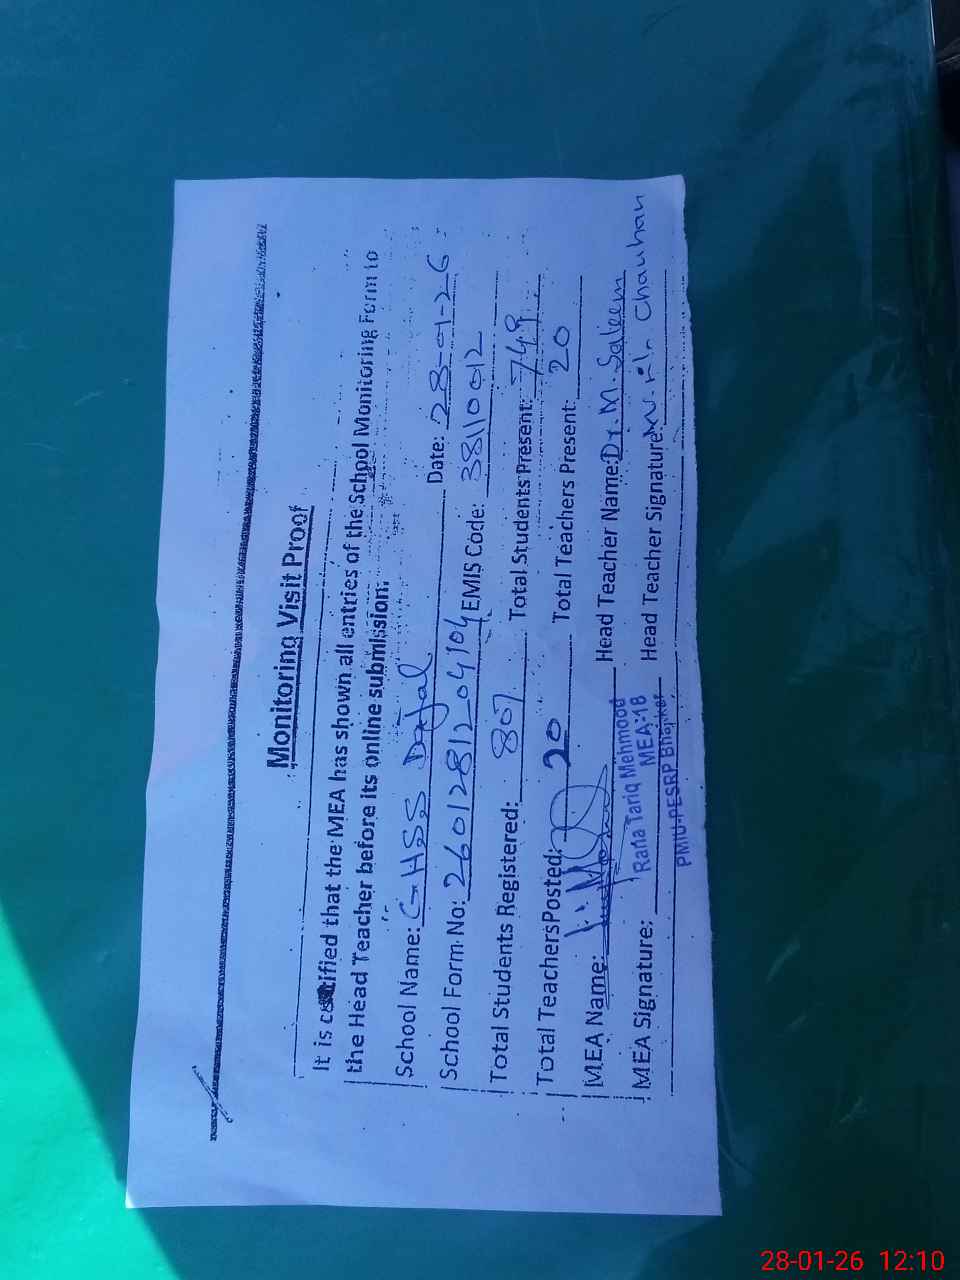 Monitoring Visit Proof
It is certified that the MEA has shown all entries of the School Monitoring Form to
the Head Teacher before its online submission.
School Name: GHSS Dajal Date: 28-01-26
School Form No: 2601281204104 EMIS Code: 38110012
Total Students Registered: 807 Total Students Present: 749
Total Teachers Posted: 20 Total Teachers Present: 20
MEA Name: Head Teacher Name: Dr. M. Saleem
MEA Signature: Rana Tariq Mehmood Head Teacher Signature: Chauhan
MEA:18
PMIU-PESRP Bhakker
28-01-26 12:10